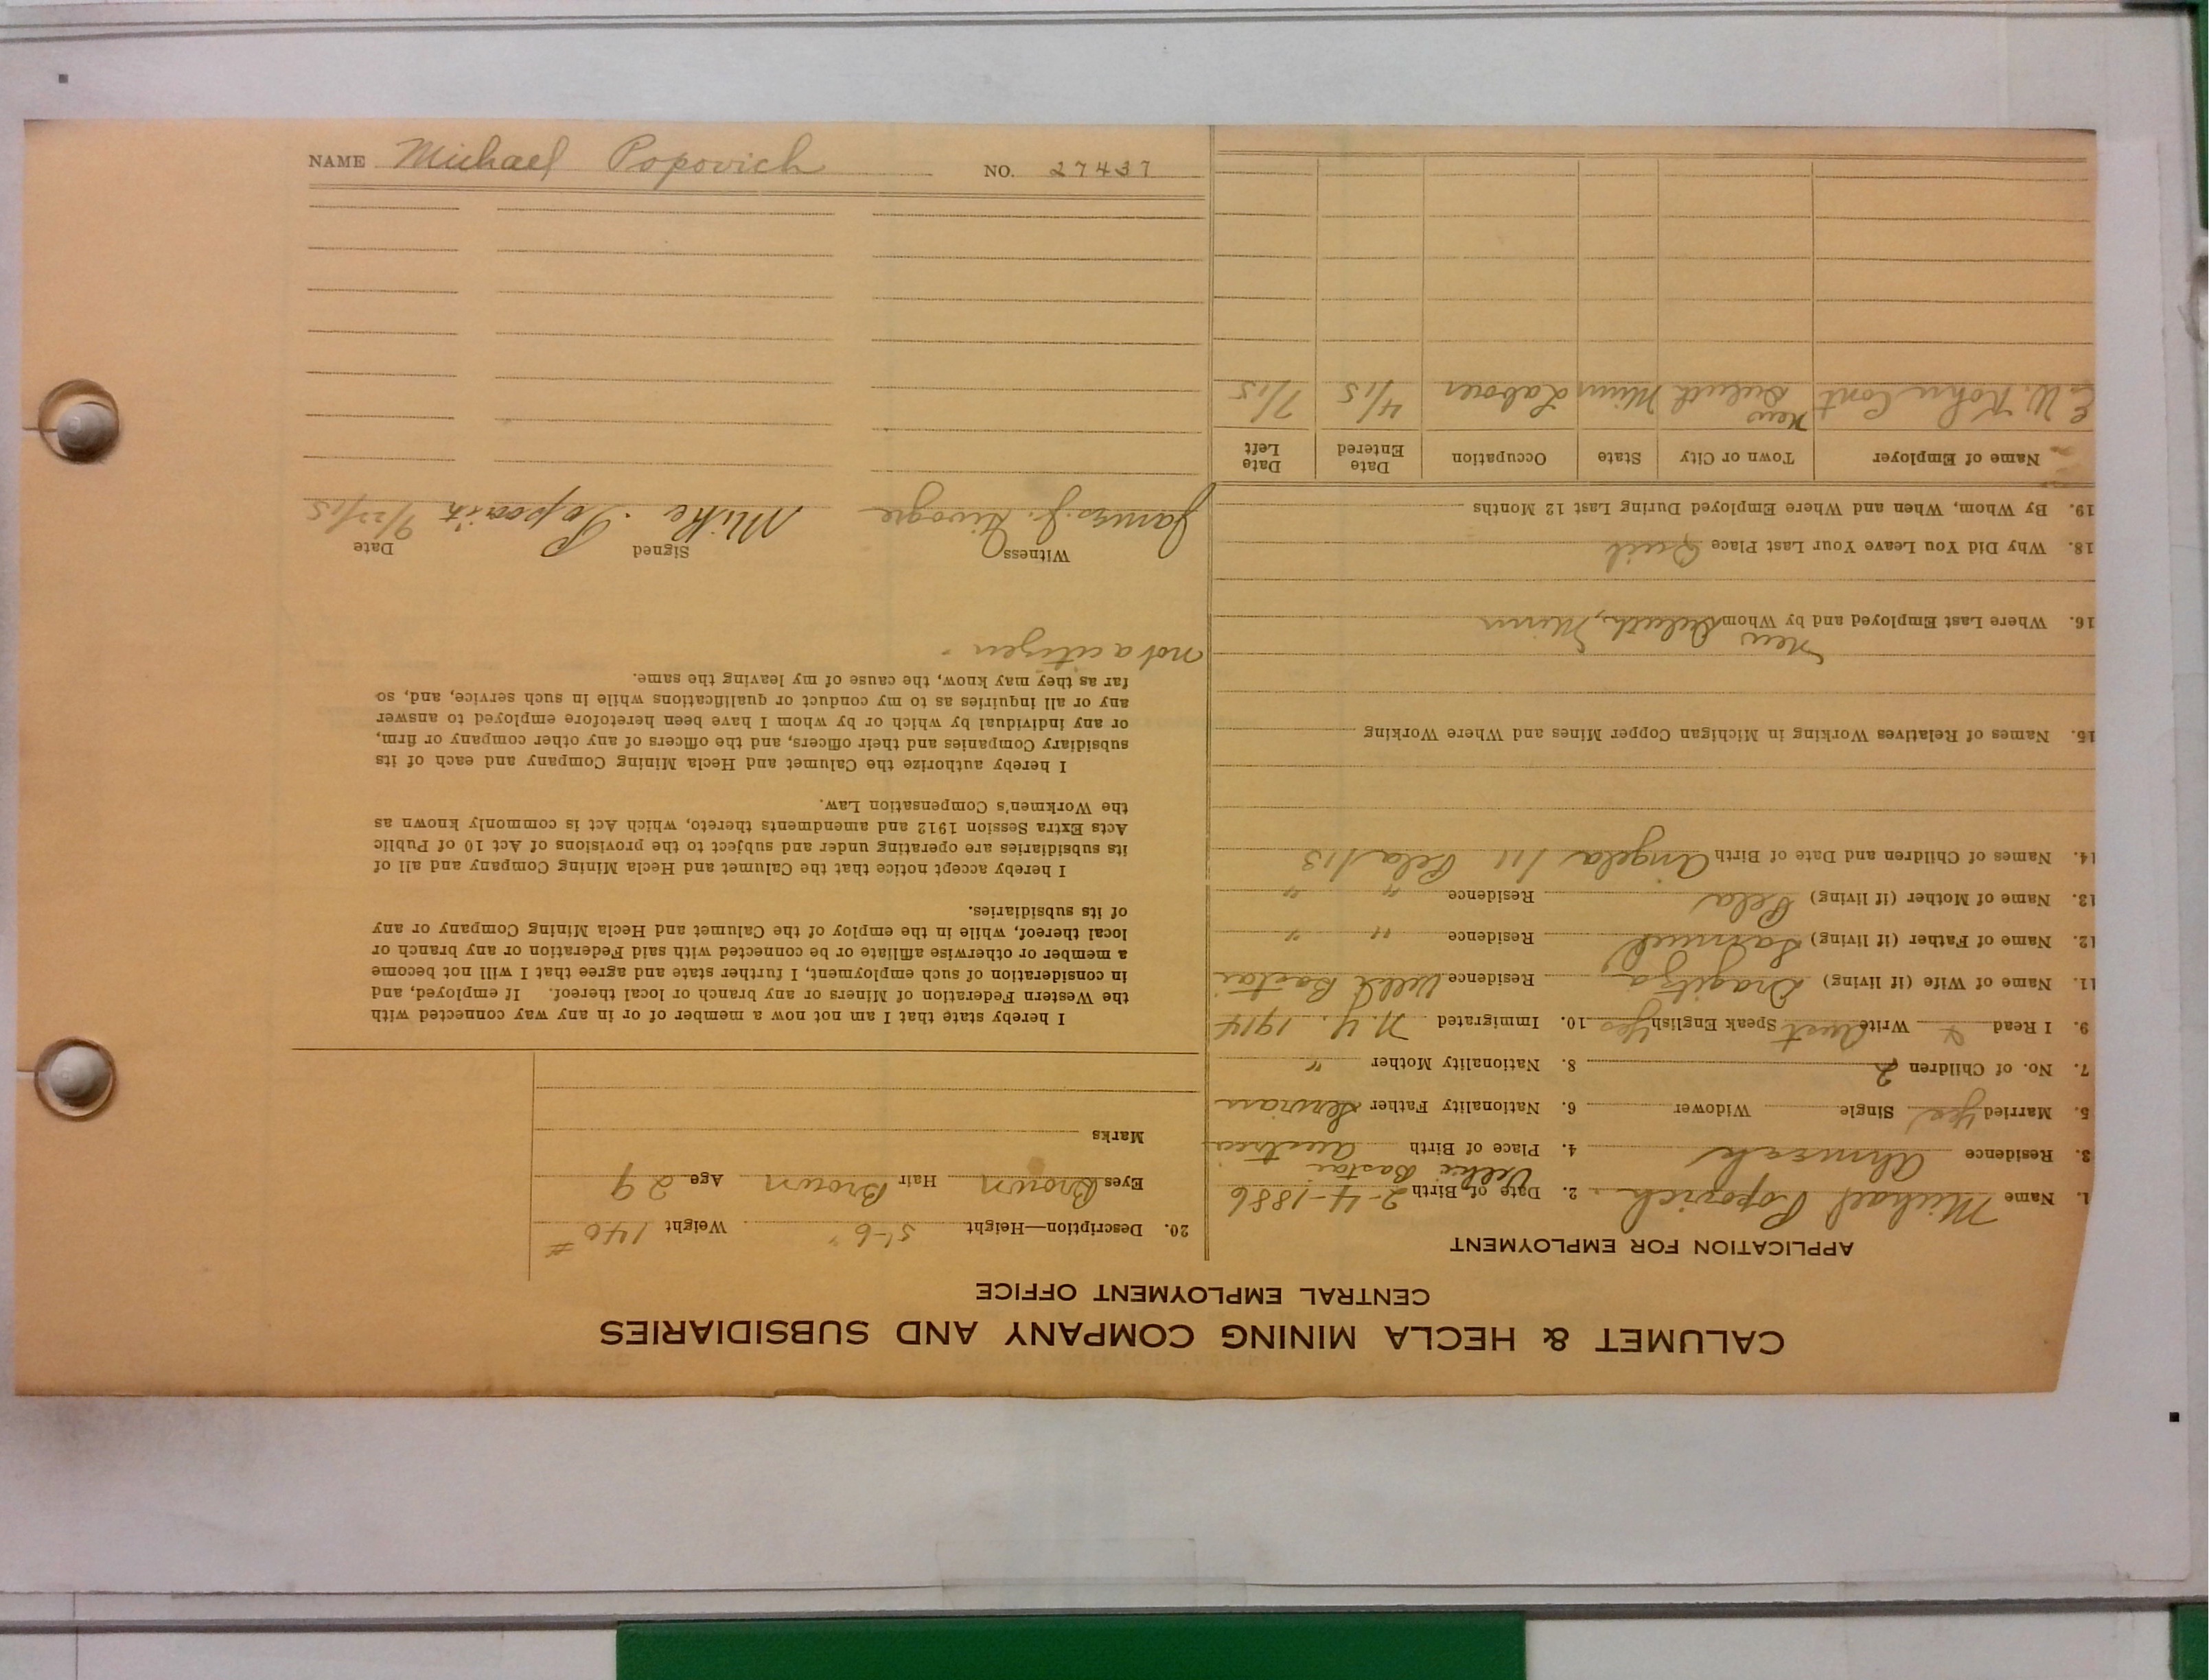 CALUMET & HECLA MINING COMPANY AND SUBSIDIARIES
CENTRAL EMPLOYMENT OFFICE
APPLICATION FOR EMPLOYMENT
1. Name Michael Popovich 2. Date of Birth 2-4-1886
3. Residence Ahmeek 4. Place of Birth Bastai Austria
5. Married Yes Single Widower 6. Nationality Father Servian
7. No. of Children 2 8. Nationality Mother "
9. I Read & Write Aust Speak English Yes 10. Immigrated N.Y. 1914
11. Name of Wife (if living) Dragitza Residence Bastai
12. Name of Father (if living) Samuel Residence " "
13. Name of Mother (if living) Pela Residence " "
14. Names of Children and Date of Birth Angela /11 Pela /13
15. Names of Relatives Working in Michigan Copper Mines and Where Working
16. Where Last Employed and by Whom New Duluth, Minn
18. Why Did You Leave Your Last Place Quit
19. By Whom, When and Where Employed During Last 12 Months
Name of Employer Town or City State Occupation Date Entered Date Left
Cont New Duluth Minn Laborer 4/15 7/15
20. Description—Height 5'-6" Weight 140 #
Eyes Brown Hair Brown Age 29
Marks
I hereby state that I am not now a member of or in any way connected with
the Western Federation of Miners or any branch or local thereof. If employed, and
in consideration of such employment, I further state and agree that I will not become
a member or otherwise affiliate or be connected with said Federation or any branch or
local thereof, while in the employ of the Calumet and Hecla Mining Company or any
of its subsidiaries.
I hereby accept notice that the Calumet and Hecla Mining Company and all of
its subsidiaries are operating under and subject to the provisions of Act 10 of Public
Acts Extra Session 1912 and amendments thereto, which Act is commonly known as
the Workmen's Compensation Law.
I hereby authorize the Calumet and Hecla Mining Company and each of its
subsidiary Companies and their officers, and the officers of any other company or firm,
or any individual by which or by whom I have been heretofore employed to answer
any or all inquiries as to my conduct or qualifications while in such service, and, so
far as they may know, the cause of my leaving the same.
not a citizen.
Witness Signed Date
James J. Mike Popovit 9/22/15
NAME Michael Popovich NO. 27437